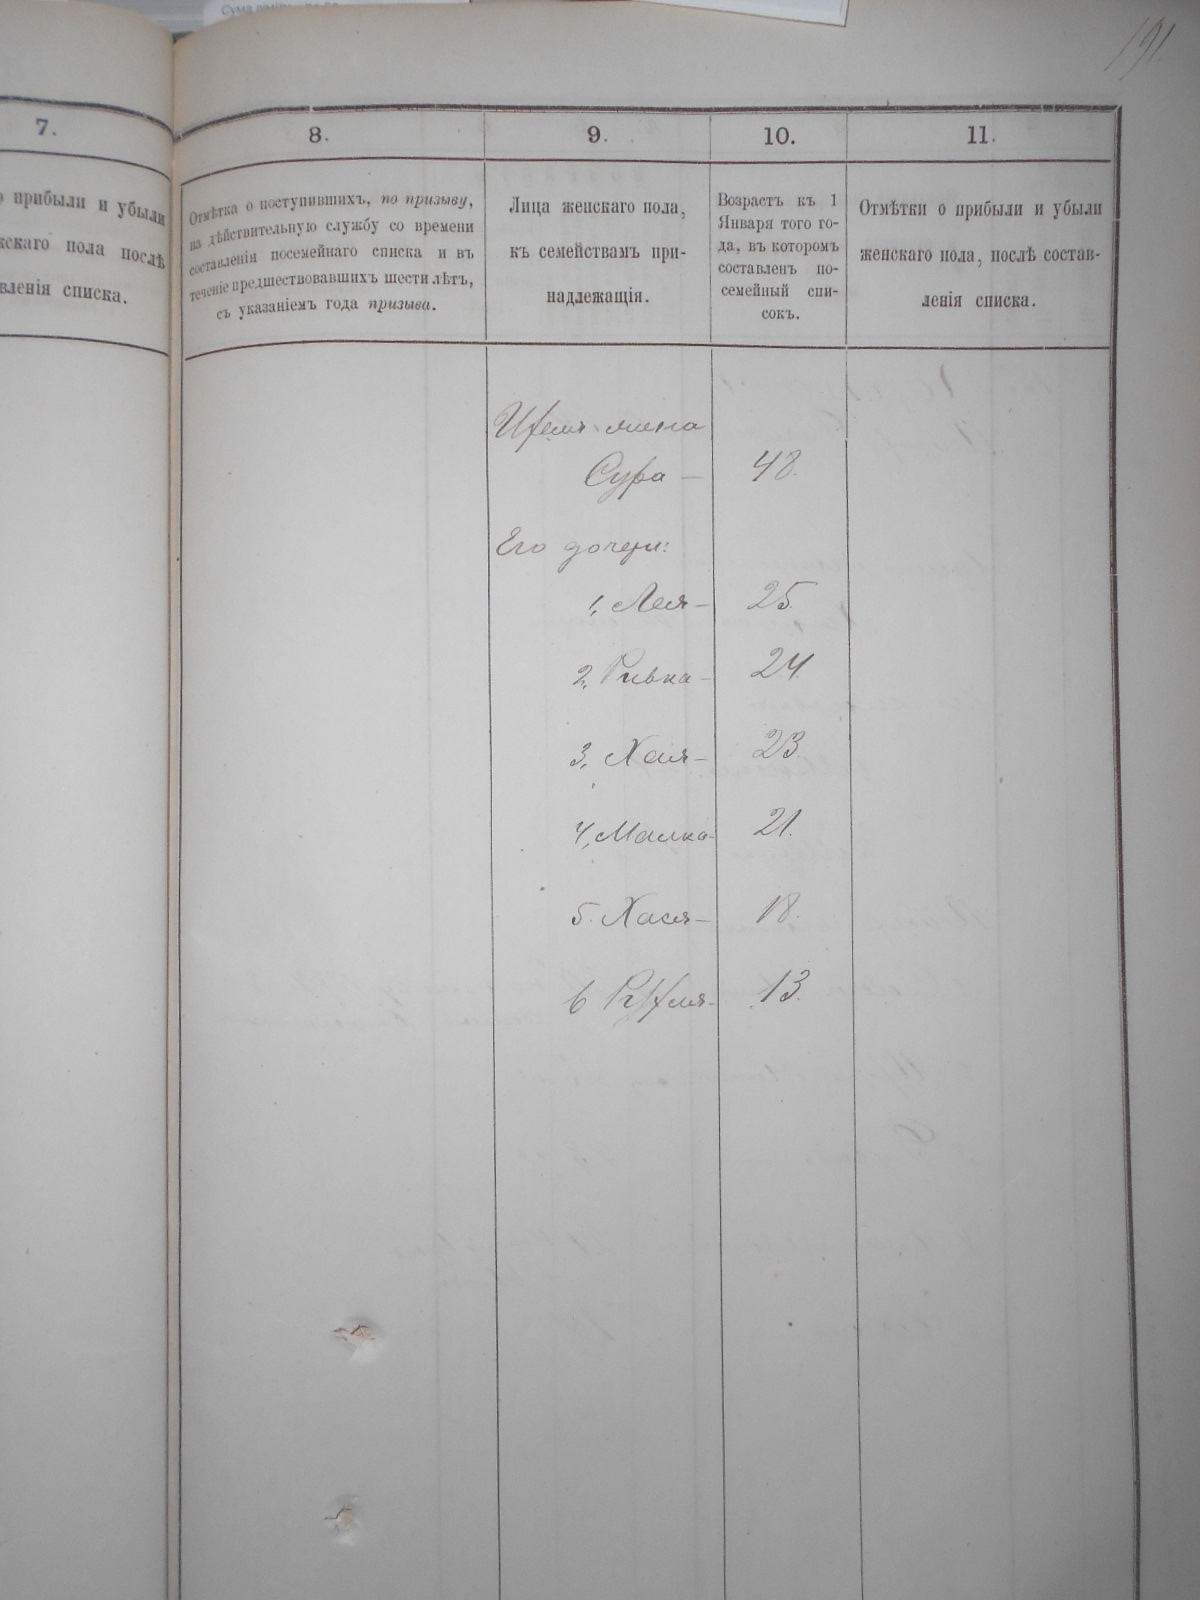 191
7.
прибыли и убыли
жскаго пола послѣ
вленія списка.
8.
Отмѣтка о поступившихъ, по призыву,
на дѣйствительную службу со времени
составленія посемейнаго списка и въ
теченіе предшествовавшихъ шести лѣтъ,
съ указаніемъ года призыва.
9.
Лица женскаго пола,
къ семействамъ при-
надлежащія.
10.
Возрастъ къ 1
Января того го-
да, въ которомъ
составленъ по-
семейный спи-
сокъ.
11.
Отмѣтки о прибыли и убыли
женскаго пола, послѣ состав-
ленія списка.
жена
Сура — 48.
Его дочери:
1, Лея — 25.
2, Ривка — 24.
3, Хая — 23.
4, Малка 21.
5. Хася — 18.
6 13.